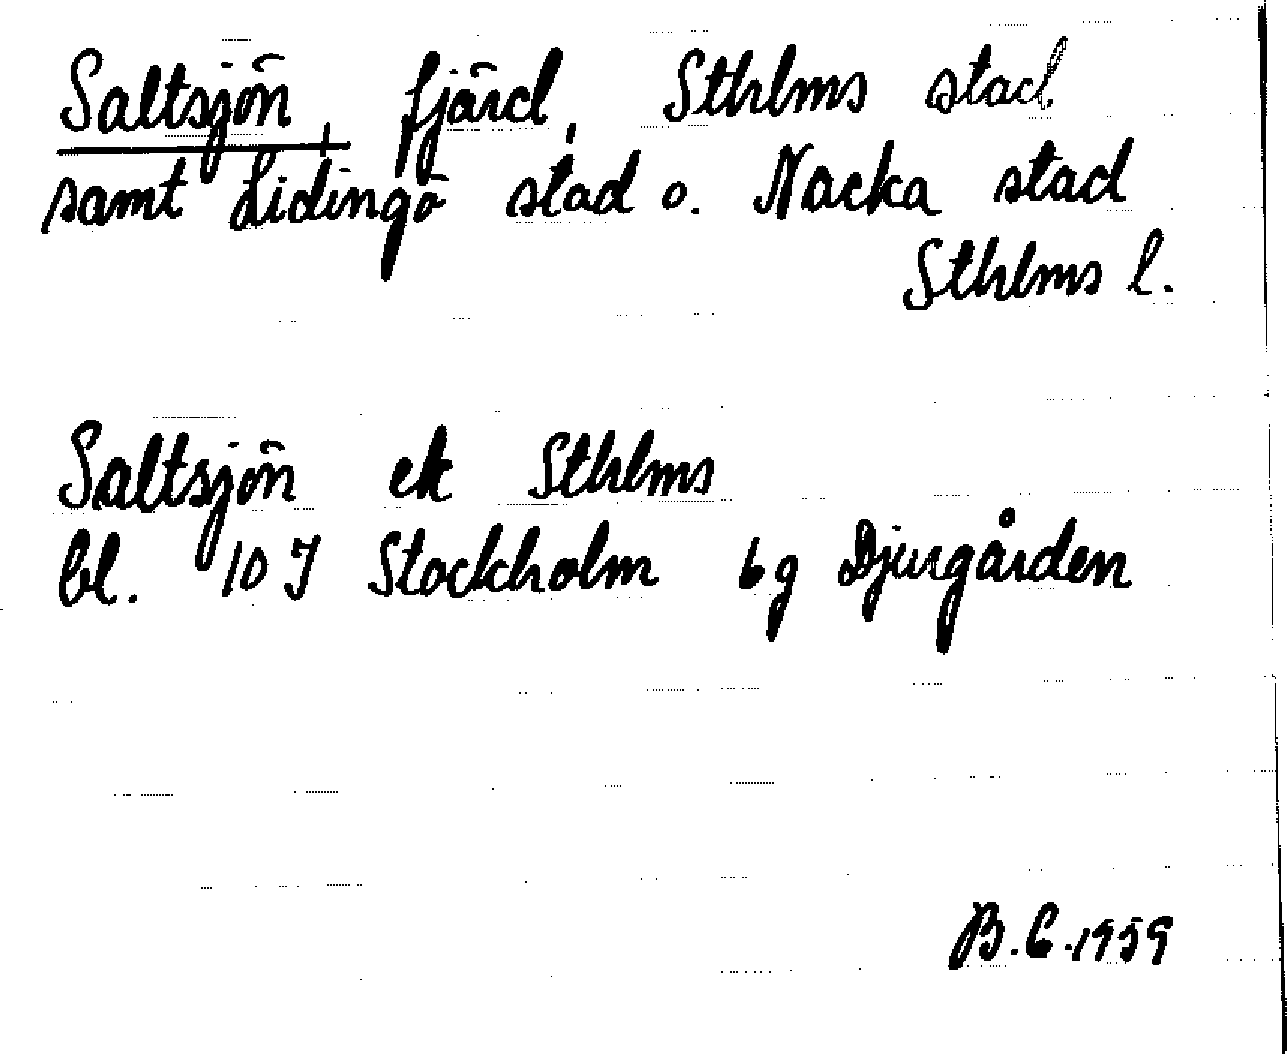 Saltsjön, fjärd, Sthlms stad
samt Lidingö stad o. Nacka stad
Sthlms l.
Saltsjön ek Sthlms
bl. 10 I Stockholm 6g Djurgården
B.C. 1959